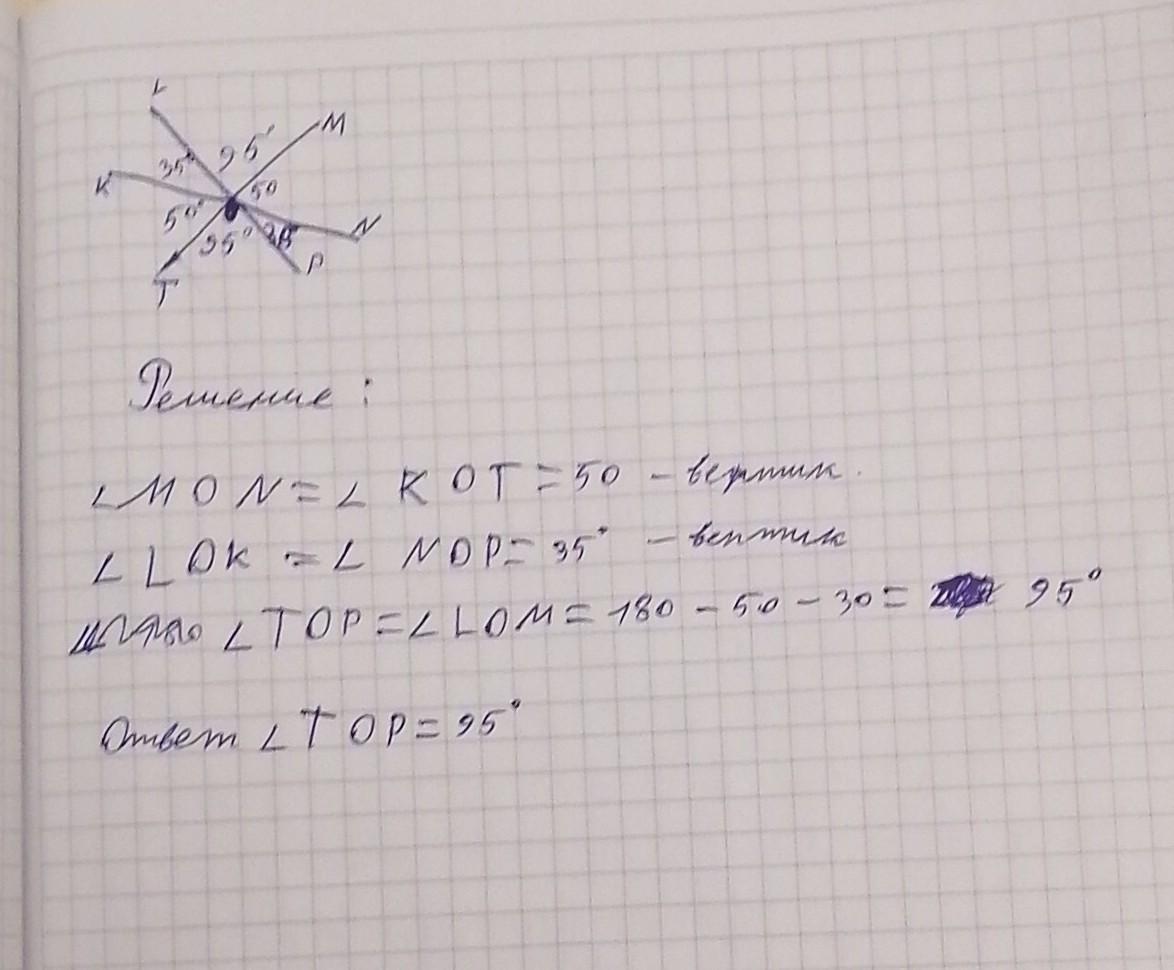 L
M
35° 95°
K 50
50° N
95° P
T
Решение :
∠MON = ∠ KOT = 50 - вертик.
∠ LOK = ∠ NOP = 35° - вептик
∠TOP = ∠LOM = 180 - 50 - 30 = 95°
Ответ ∠TOP = 95°